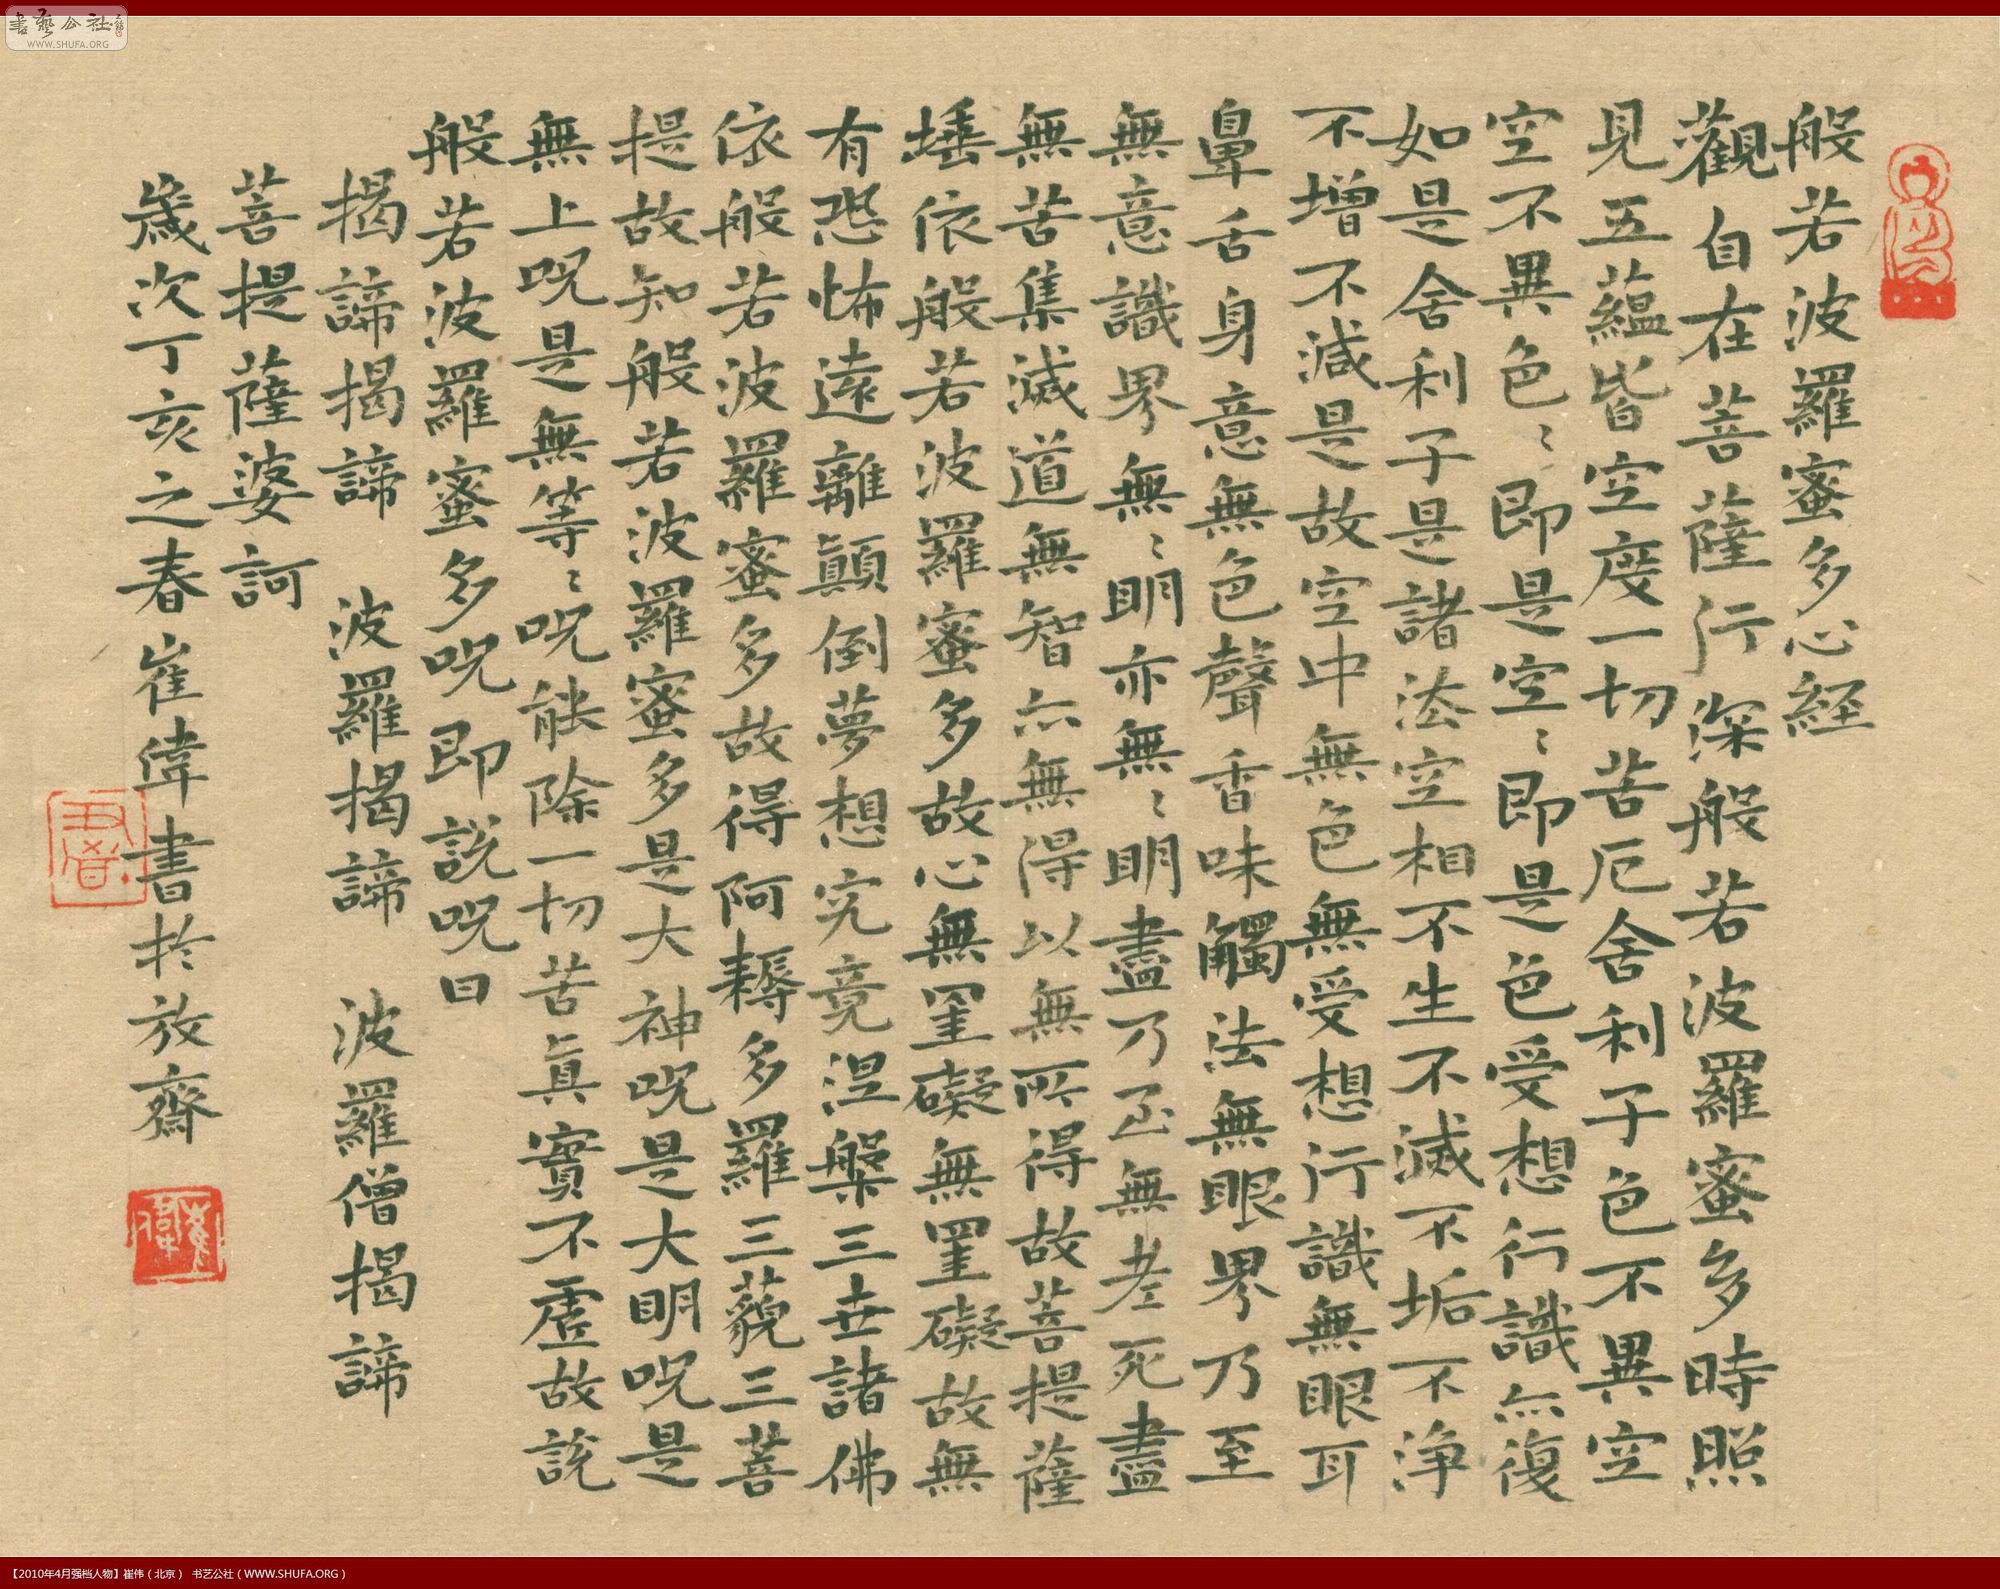 書藝公社
WWW.SHUFA.ORG
般若波羅蜜多心経
觀自在菩薩行深般若波羅蜜多時照
見五蘊皆空度一切苦厄舍利子色不異空
空不異色〻即是空〻即是色受想行識亦復
如是舍利子是諸法空相不生不滅不垢不净
不增不減是故空中無色無受想行識無眼耳
鼻舌身意無色聲香味觸法無眼界乃至
無意識界無〻明亦無〻明盡乃至無老死盡
無苦集滅道無智亦無得以無所得故菩提薩
埵依般若波羅蜜多故心無罣礙無罣礙故無
有恐怖遠離顛倒夢想究竟涅槃三世諸佛
依般若波羅蜜多故得阿耨多羅三藐三菩
提故知般若波羅蜜多是大神呪是大明呪是
無上呪是無等〻呪能除一切苦真實不虛故說
般若波羅蜜多呪即說呪曰
揭諦揭諦 波羅揭諦 波羅僧揭諦
菩提薩婆訶
歲次丁亥之春崔偉書於放齋
崔偉
【2010年4月强档人物】崔伟（北京） 书艺公社（WWW.SHUFA.ORG）